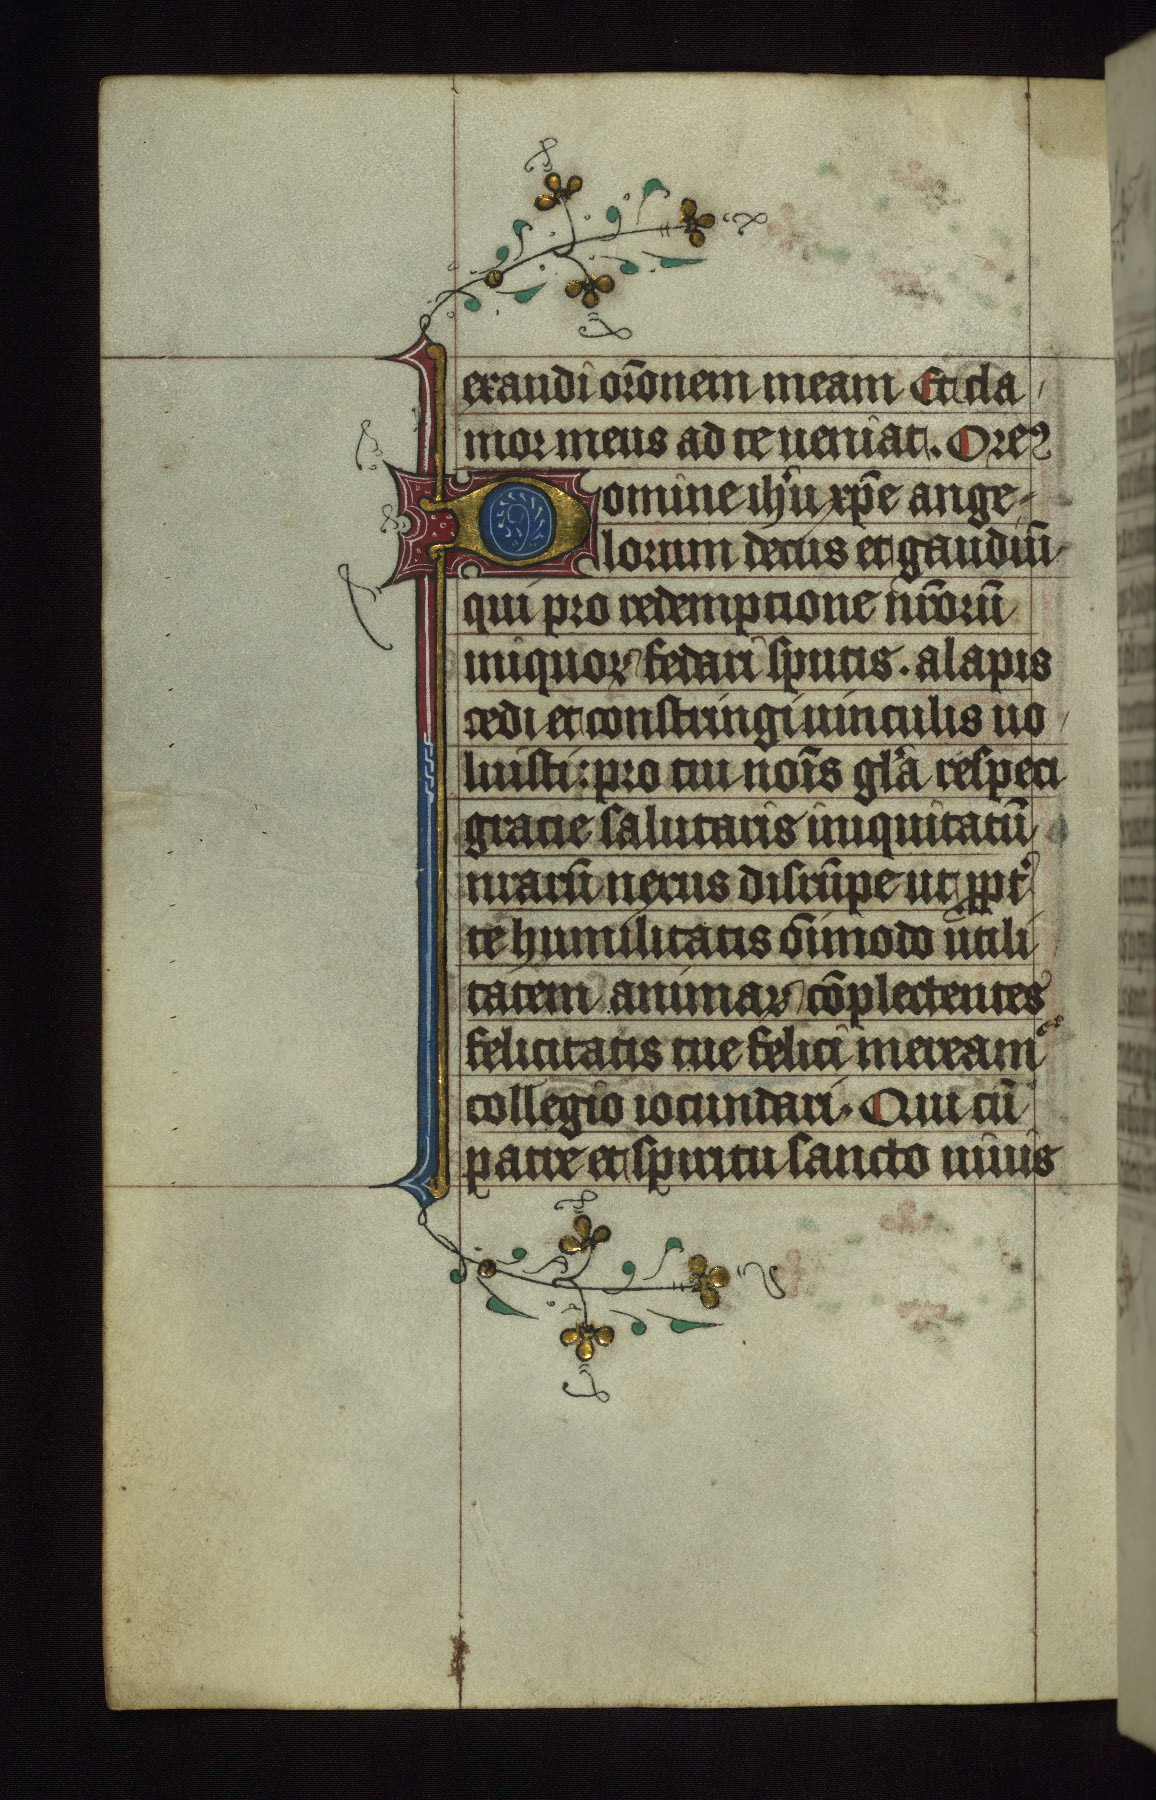 exaudi orōnem meam Et cla
mor meus ad te ueniat. Orem9
Domine ihū xp̄e ange-
lorum decus et gaudiū
qui pro redemptione nr̄orū
iniquoꝝ fedari sputis. alapis
cedi et constringi uinculis uo
luisti: pro tui noīs gl̄a respectu
gracie salutaris iniquitatū
nrarū nexus disrūpe ut ꝓpt̄
te humilitatis ōimodo utili
tatem animaꝝ cōplectentes
felicitatis tue felici mereamᵉʳ
collegio iocundari. Qui cū
patre et spiritu sancto uiuis